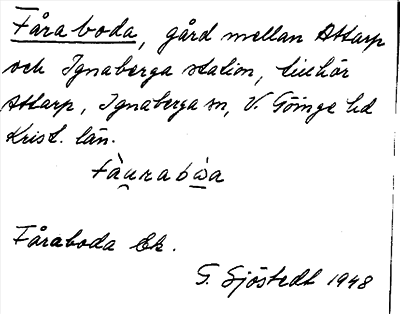 Fåraboda, gård mellan Attarp
och Ignaberga station, tillhör
Attarp, Ignaberga sn, V. Göinge hd
Krist. län.
fàu̯rabὼa
Fåraboda Ek.
G. Sjöstedt 1948